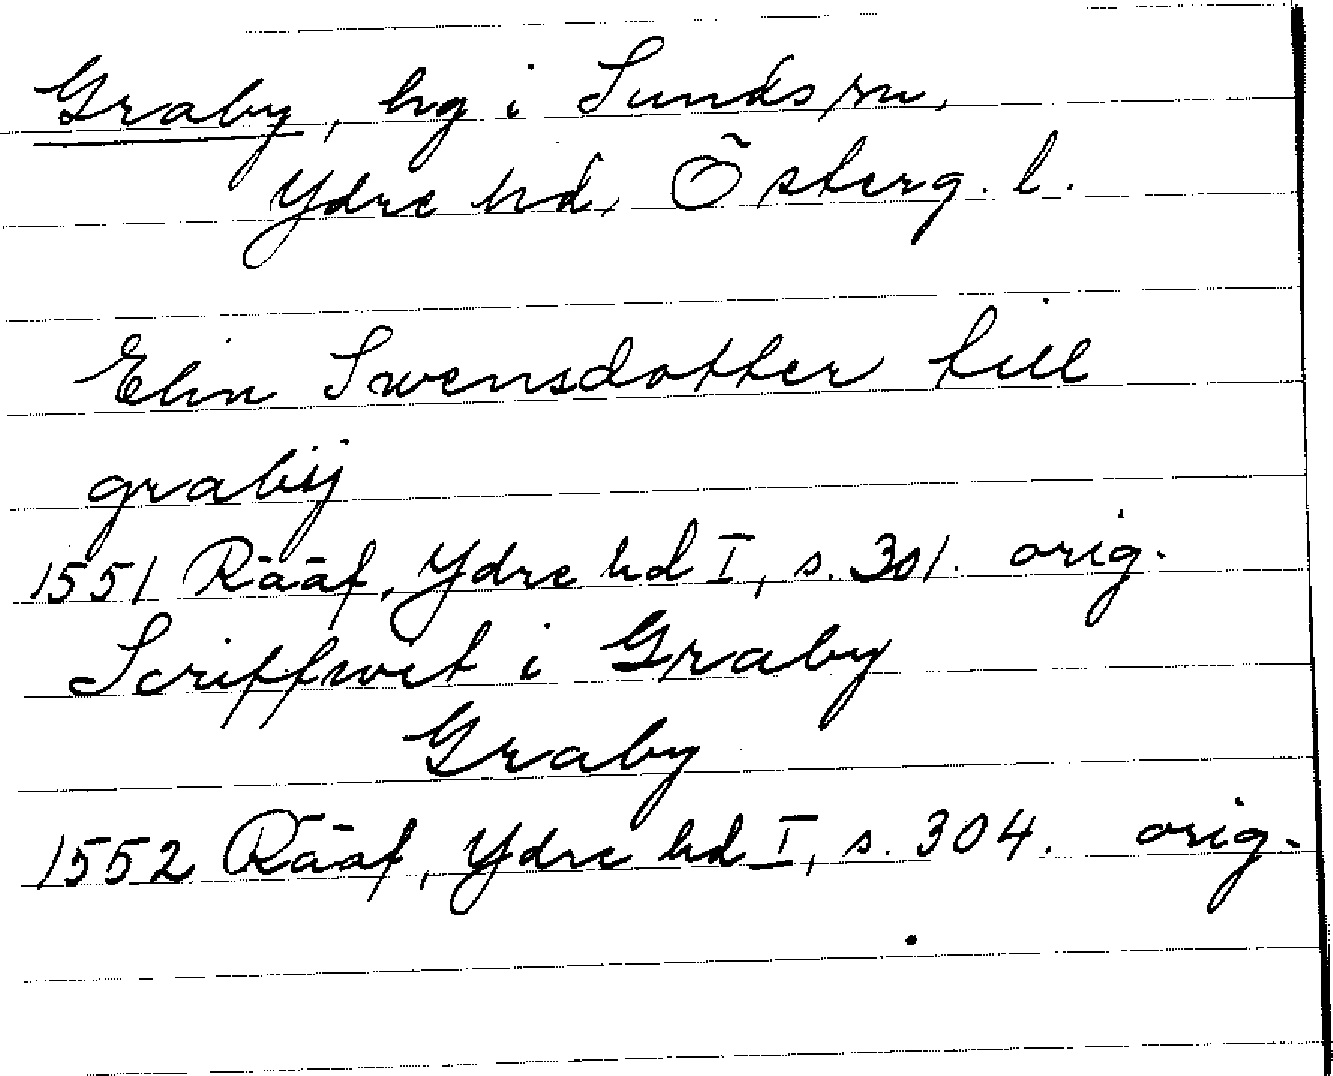 Graby, hg i Sunds sn,
Ydre hd, Österg. l.
Elin Swensdotter till
grabÿ
1551 Rääf, Ydre hd I, s. 301. orig.
Scriffwet i Graby
Graby
1552 Rääf, Ydre hd I, s. 304. orig.